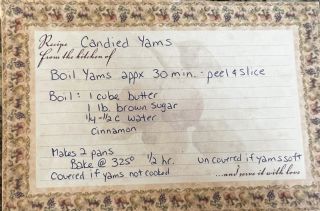 Recipe Candied Yams
from the kitchen of
Boil Yams appx 30 min. - peel & slice
Boil: 1 cube butter
1 lb. brown sugar
1/4 - 1/2 c water
Cinnamon
Makes 2 pans
Bake @ 325° 1/2 hr. uncovered if yams soft
Covered if yams not cooked
...and serve it with love